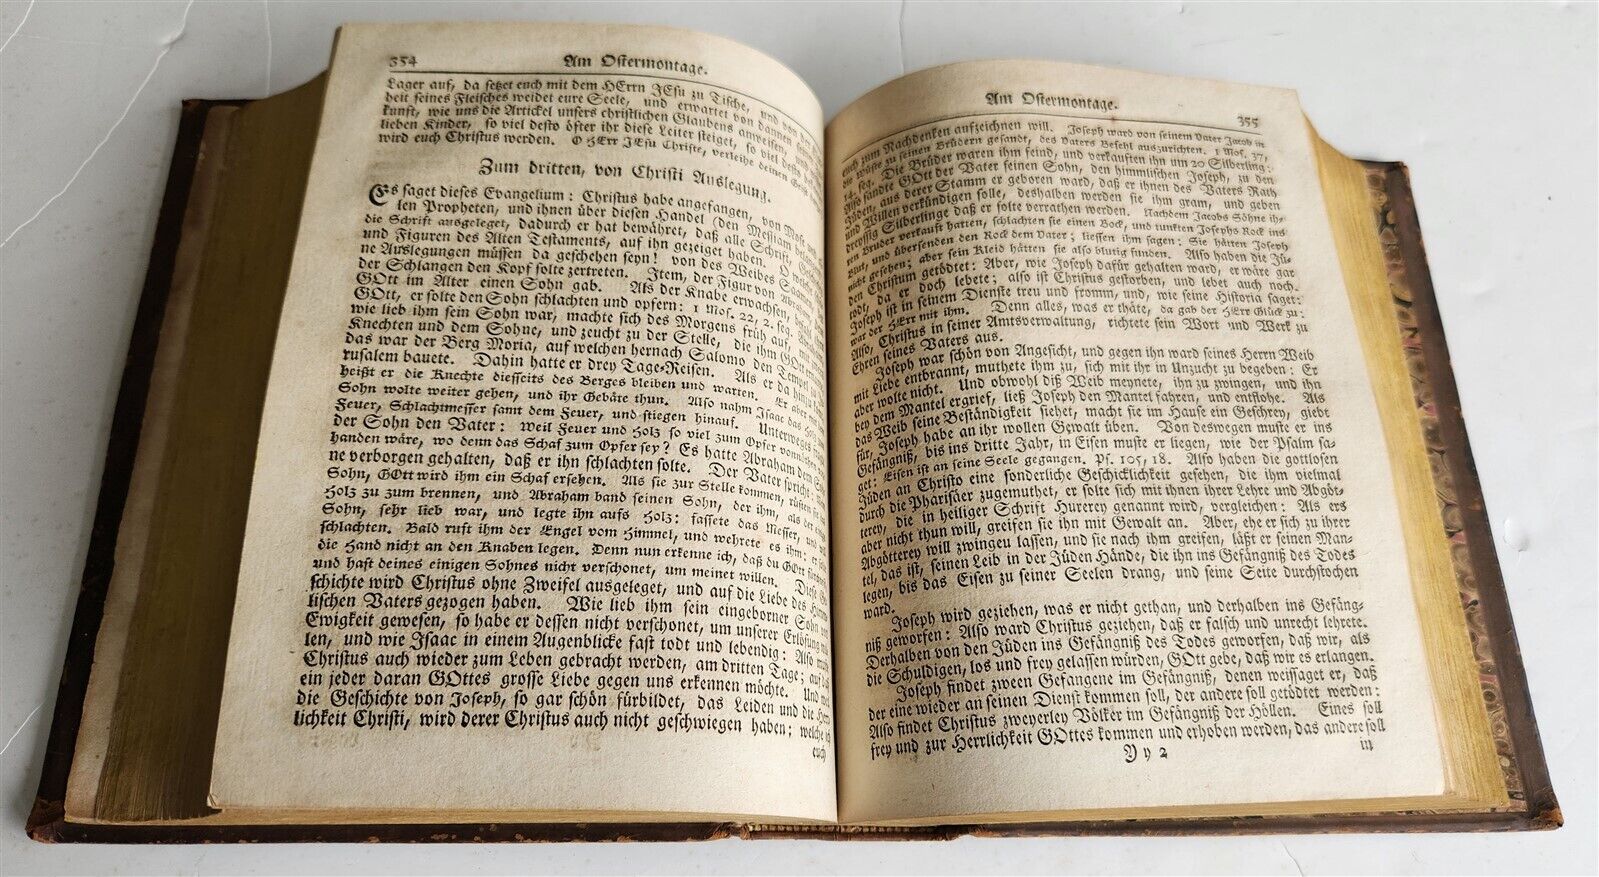 354 Am Ostermontage.
Lager auf, da setzet euch mit dem HErrn JEsu zu Tische, und von der
heit seines Fleisches weidet eure Seele, und erwartet von dannen
kunft, wie uns die Artickel unsers christlichen Glaubens anweisen,
lieben Kinder, so viel desto öfter ihr diese Leiter steiget, so viel desto
wird euch Christus werden. O HErr JEsu Christe, verleihe deinen Geist
Zum dritten, von Christi Auslegung.
Es saget dieses Evangelium: Christus habe angefangen, von Mose und
len Propheten, und ihnen über diesen Handel (den Meßiam betreffend)
die Schrift ausgeleget, dadurch er hat bewähret, daß alle Schrift,
und Figuren des Alten Testaments, auf ihn gezeiget haben. O
ne Auslegungen müssen da geschehen seyn! von des Weibes Saamen
der Schlangen den Kopf solte zertreten. Item, der Figur von Abraham
GOtt im Alter einen Sohn gab. Als der Knabe erwachsen,
GOtt, er solte den Sohn schlachten und opfern: 1 Mos. 22, 2. seq.
wie lieb ihm sein Sohn war, machte sich des Morgens früh auf, mit
Knechten und dem Sohne, und zeucht zu der Stelle, die ihm GOtt
das war der Berg Moria, auf welchen hernach Salomo den Tempel
rusalem bauete. Dahin hatte er drey Tage-Reisen. Als er da hinzu
heißt er die Knechte diesseits des Berges bleiben und warten. Er aber
Sohn wolte weiter gehen, und ihr Gebäte thun. Also nahm Isaac das Holz
Feuer, Schlachtmesser samt dem Feuer, und stiegen hinauf. Unterweges
der Sohn den Vater: weil Feuer und Holz so viel zum Opfer vonnöthen
handen wäre, wo denn das Schaf zum Opfer sey? Es hatte Abraham dem
ne verborgen gehalten, daß er ihn schlachten solte. Der Vater spricht:
Sohn, GOtt wird ihm ein Schaf ersehen. Als sie zur Stelle kommen, rüsten sie
Holz zu zum brennen, und Abraham band seinen Sohn, der ihm, als der
Sohn, sehr lieb war, und legte ihn aufs Holz: fassete das Messer, und
schlachten. Bald ruft ihm der Engel vom Himmel, und wehrete es ihm: er
die Hand nicht an den Knaben legen. Denn nun erkenne ich, daß du GOtt
und hast deines einigen Sohnes nicht verschonet, um meinet willen. Diese
schichte wird Christus ohne Zweifel ausgeleget, und auf die Liebe des
lischen Vaters gezogen haben. Wie lieb ihm sein eingeborner Sohn von
Ewigkeit gewesen, so habe er dessen nicht verschonet, um unserer Erlösung
len, und wie Isaac in einem Augenblicke fast todt und lebendig: Also
Christus auch wieder zum Leben gebracht werden, am dritten Tage; auf daß
ein jeder daran GOttes grosse Liebe gegen uns erkennen möchte. Und weil
die Geschichte von Joseph, so gar schön fürbildet, das Leiden und die Herr-
lichkeit Christi, wird derer Christus auch nicht geschwiegen haben; welche ich
euch
Am Ostermontage. 355
euch zum Nachdenken aufzeichnen will. Joseph ward von seinem Vater Jacob in
die Wüste zu seinen Brüdern gesandt, des Vaters Befehl auszurichten. 1 Mos. 37,
14. seq. Die Brüder waren ihm feind, und verkauften ihn um 20 Silberling:
Also sandte GOtt der Vater seinen Sohn, den himmlischen Joseph, zu den
Jüden, aus derer Stamm er geboren ward, daß er ihnen des Vaters Rath
und Willen verkündigen solle, deshalben werden sie ihm gram, und geben
dreyßig Silberlinge daß er solte verrathen werden. Nachdem Jacobs Söhne ih-
ren Bruder verkauft hatten, schlachten sie einen Bock, und tunkten Josephs Rock ins
Blut, und übersenden den Rock dem Vater; liessen ihm sagen: Sie hätten Joseph
nicht gesehen; aber sein Kleid hätten sie also blutig funden. Also haben die Jü-
den Christum getödtet: Aber, wie Joseph dafür gehalten ward, er wäre gar
todt, da er doch lebete; also ist Christus gestorben, und lebet auch noch.
Joseph ist in seinem Dienste treu und fromm, und, wie seine Historia saget:
war der HErr mit ihm. Denn alles, was er thäte, da gab der HErr Glück zu:
Also, Christus in seiner Amtsverwaltung, richtete sein Wort und Werk zu
Ehren seines Vaters aus.
Joseph war schön von Angesicht, und gegen ihn ward seines Herrn Weib
mit Liebe entbrannt, muthete ihm zu, sich mit ihr in Unzucht zu begeben: Er
aber wolte nicht. Und obwohl diß Weib meynete, ihn zu zwingen, und ihn
bey dem Mantel ergrief, ließ Joseph den Mantel fahren, und entflohe. Als
das Weib seine Beständigkeit siehet, macht sie im Hause ein Geschrey, giebt
für, Joseph habe an ihr wollen Gewalt üben. Von deswegen muste er ins
Gefängniß, bis ins dritte Jahr, in Eisen muste er liegen, wie der Psalm sa-
get: Eisen ist an seine Seele gegangen. Ps. 105, 18. Also haben die gottlosen
Jüden an Christo eine sonderliche Geschicklichkeit gesehen, die ihm vielmal
durch die Pharisäer zugemuthet, er solte sich mit ihnen ihrer Lehre und Abgöt-
terey, die in heiliger Schrift Hurerey genannt wird, vergleichen: Als ers
aber nicht thun will, greifen sie ihn mit Gewalt an. Aber, ehe er sich zu ihrer
Abgötterey will zwingen lassen, und sie nach ihm greifen, läßt er seinen Man-
tel, das ist, seinen Leib in der Jüden Hände, die ihn ins Gefängniß des Todes
legen, bis das Eisen zu seiner Seelen drang, und seine Seite durchstochen
ward.
Joseph wird geziehen, was er nicht gethan, und derhalben ins Gefäng-
niß geworfen: Also ward Christus geziehen, daß er falsch und unrecht lehrete.
Derhalben von den Jüden ins Gefängniß des Todes geworfen, daß wir, als
die Schuldigen, los und frey gelassen würden, GOtt gebe, daß wir es erlangen.
Joseph findet zween Gefangene im Gefängniß, denen weissaget er, daß
der eine wieder an seinen Dienst kommen soll, der andere soll getödtet werden:
Also findet Christus zweyerley Völker im Gefängniß der Höllen. Eines soll
frey und zur Herrlichkeit GOttes kommen und erhoben werden, das andere soll
Yy 2 in